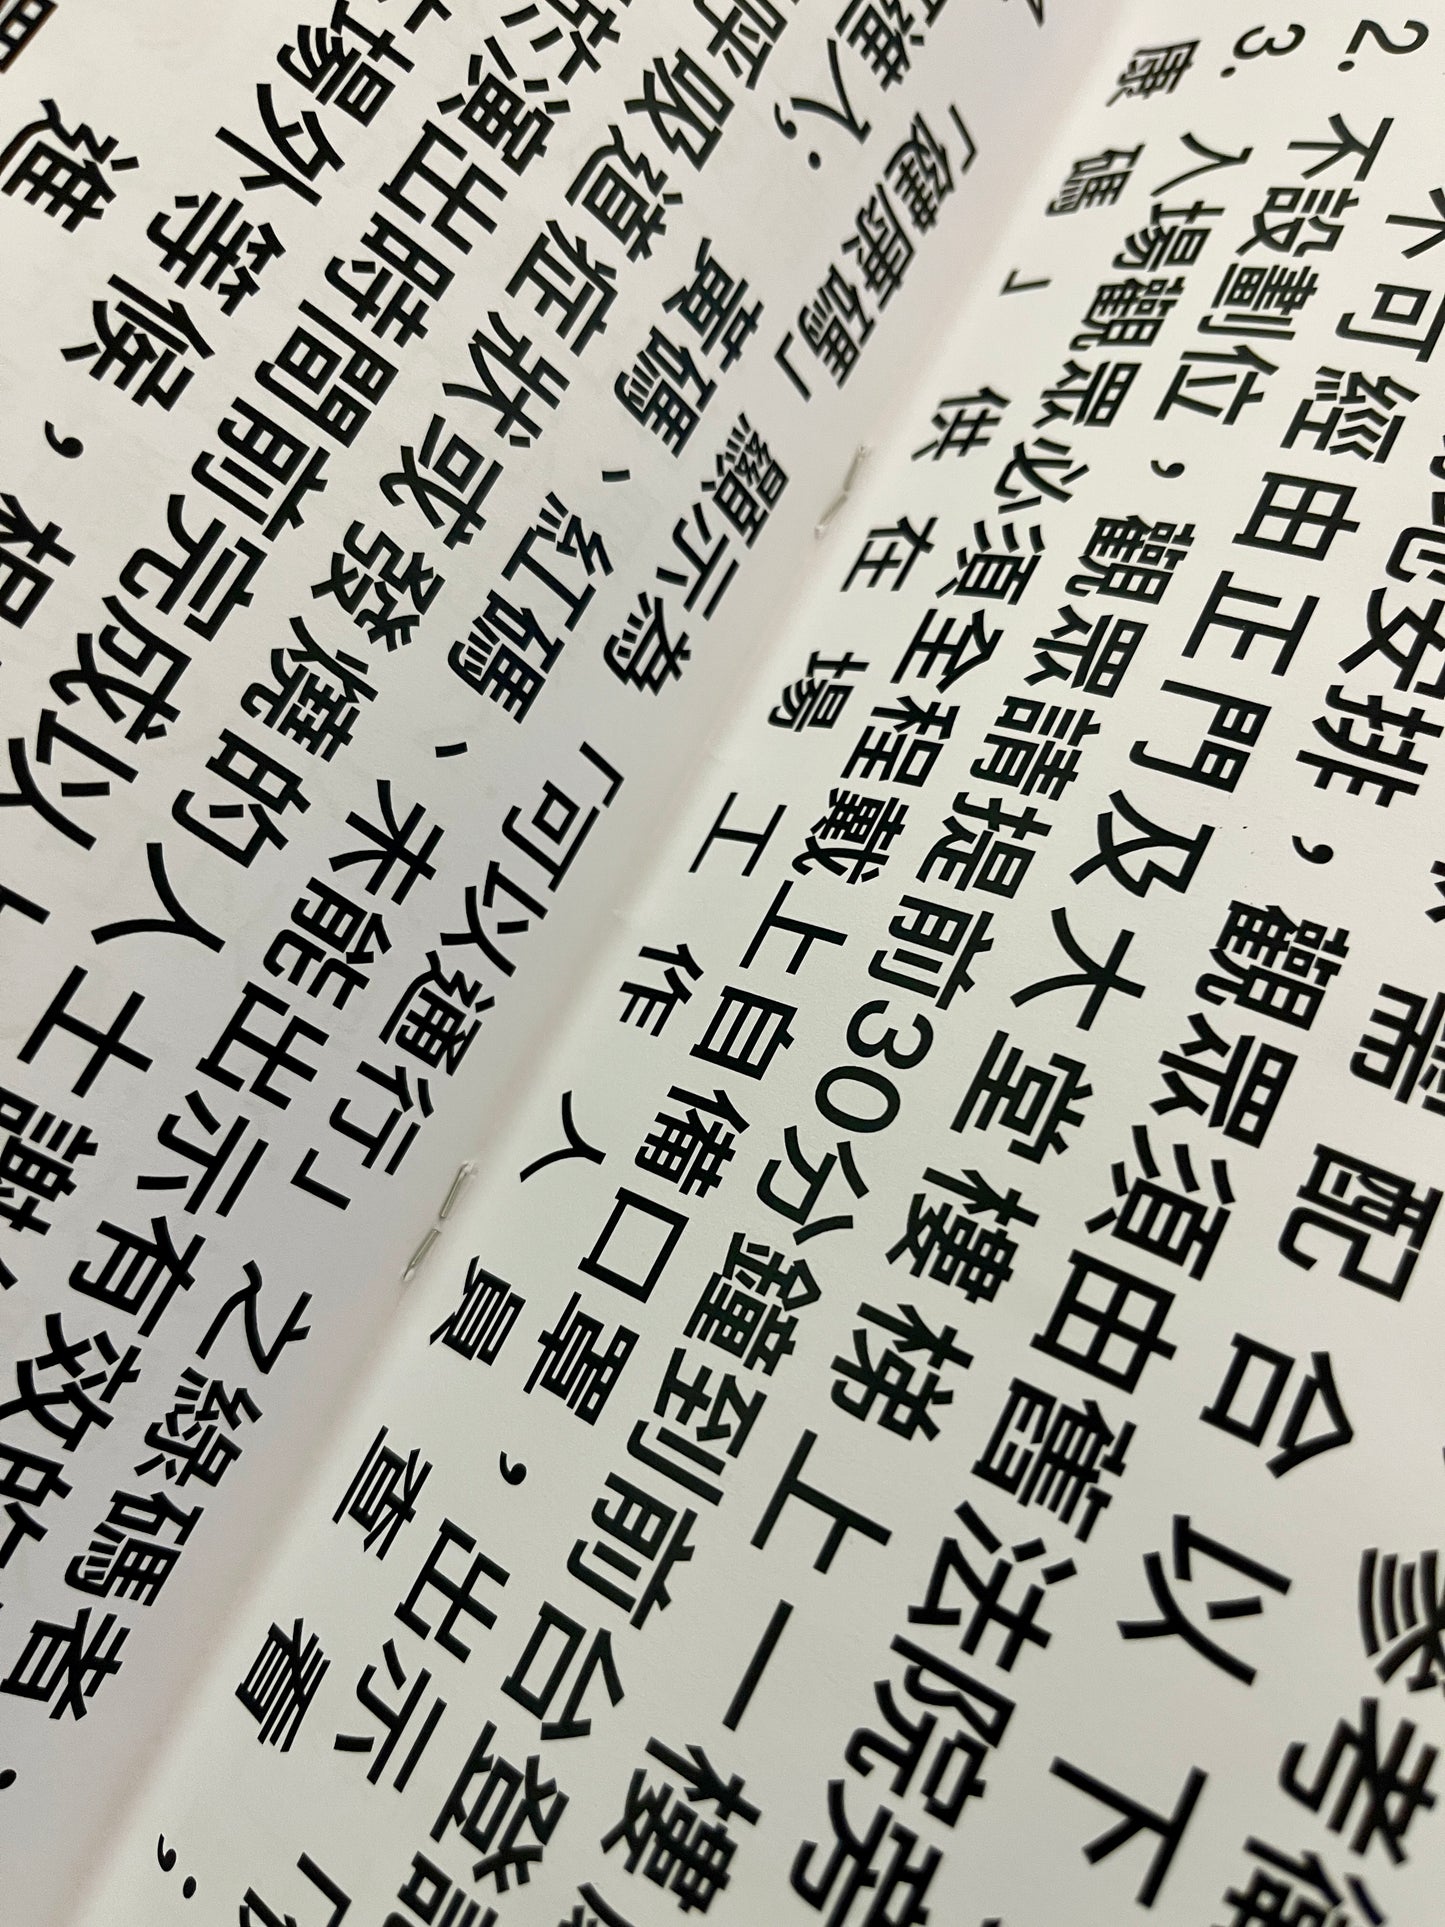 參考衛
需配合以下
此安排，觀眾須由舊法院旁
不可經由正門及大堂樓梯上一樓
2. 不設劃位，觀眾請提前30分鐘到前台登記
3. 入場觀眾必須全程戴上自備口罩，出示「
康碼」供在場工作人員查看；
「健康碼」顯示為「可以通行」之綠碼者，
可進入；黃碼、紅碼、未能出示有效的
呼吸道症狀或發燒的人士謝
於演出時間前完成以上
場外等候，
進